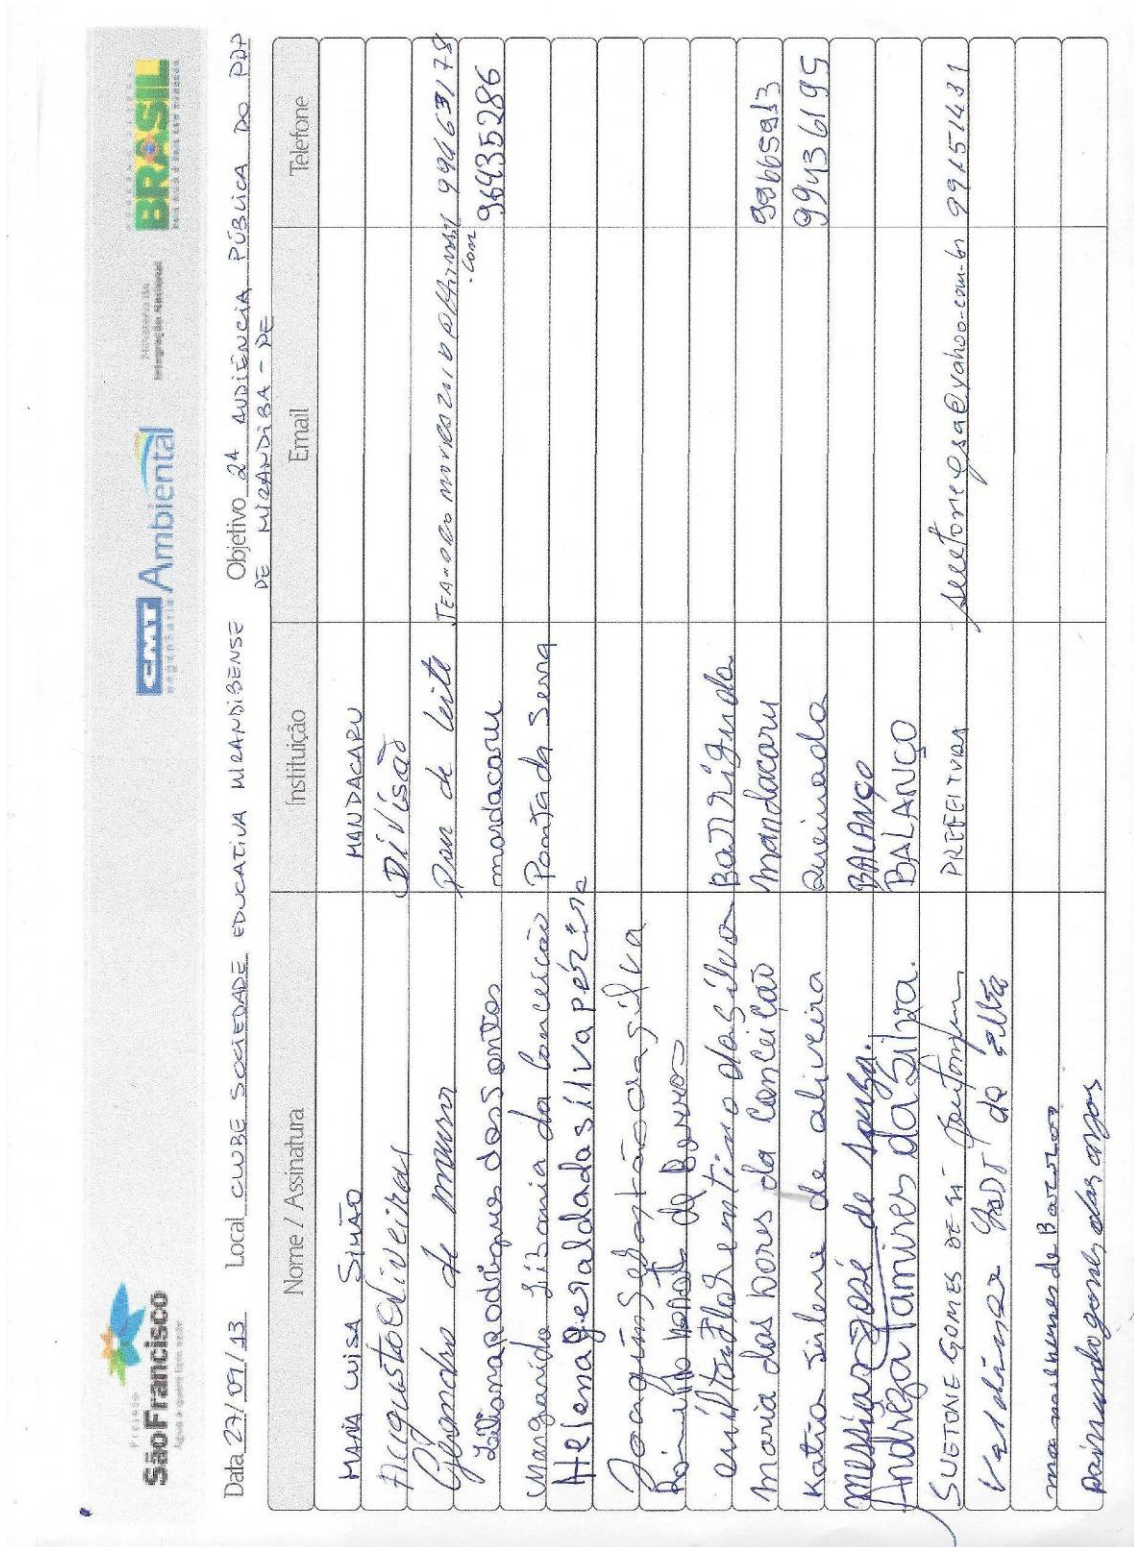 Projeto
São Francisco
Água a quem tem sede
CMT Ambiental
engenharia
Ministério da
Integração Nacional
BRASIL
Data 27/09/13 Local CLUBE SOCIEDADE EDUCATIVA MIRANDIBENSE Objetivo 2ª AUDIÊNCIA PÚBLICA DO PDP
DE MIRANDIBA - PE
Nome / Assinatura Instituição Email Telefone
MARIA LUISA SIMÃO MANDACARU
Augusto Oliveira Divisão
de moura de leite 99463178
.com
dos santos mandacaru 96435286
Margarida da Conceição Ponta da Serra
Helena geralda da silva
Joaquim Sebastião da silva
de Barros
da silva Barriguda
maria das Dores da Conceição mandacaru 99665913
Katia Silene de oliveira Queimada 99436195
messias José de souza. BALANÇO
Andréza Tamires da Silva. BALANÇO
SUETONE GOMES DE SÁ PREFEITURA suetonegsa@yahoo.com.br 99151431
da silva
nunes de Barros
Raimundo gomes dos